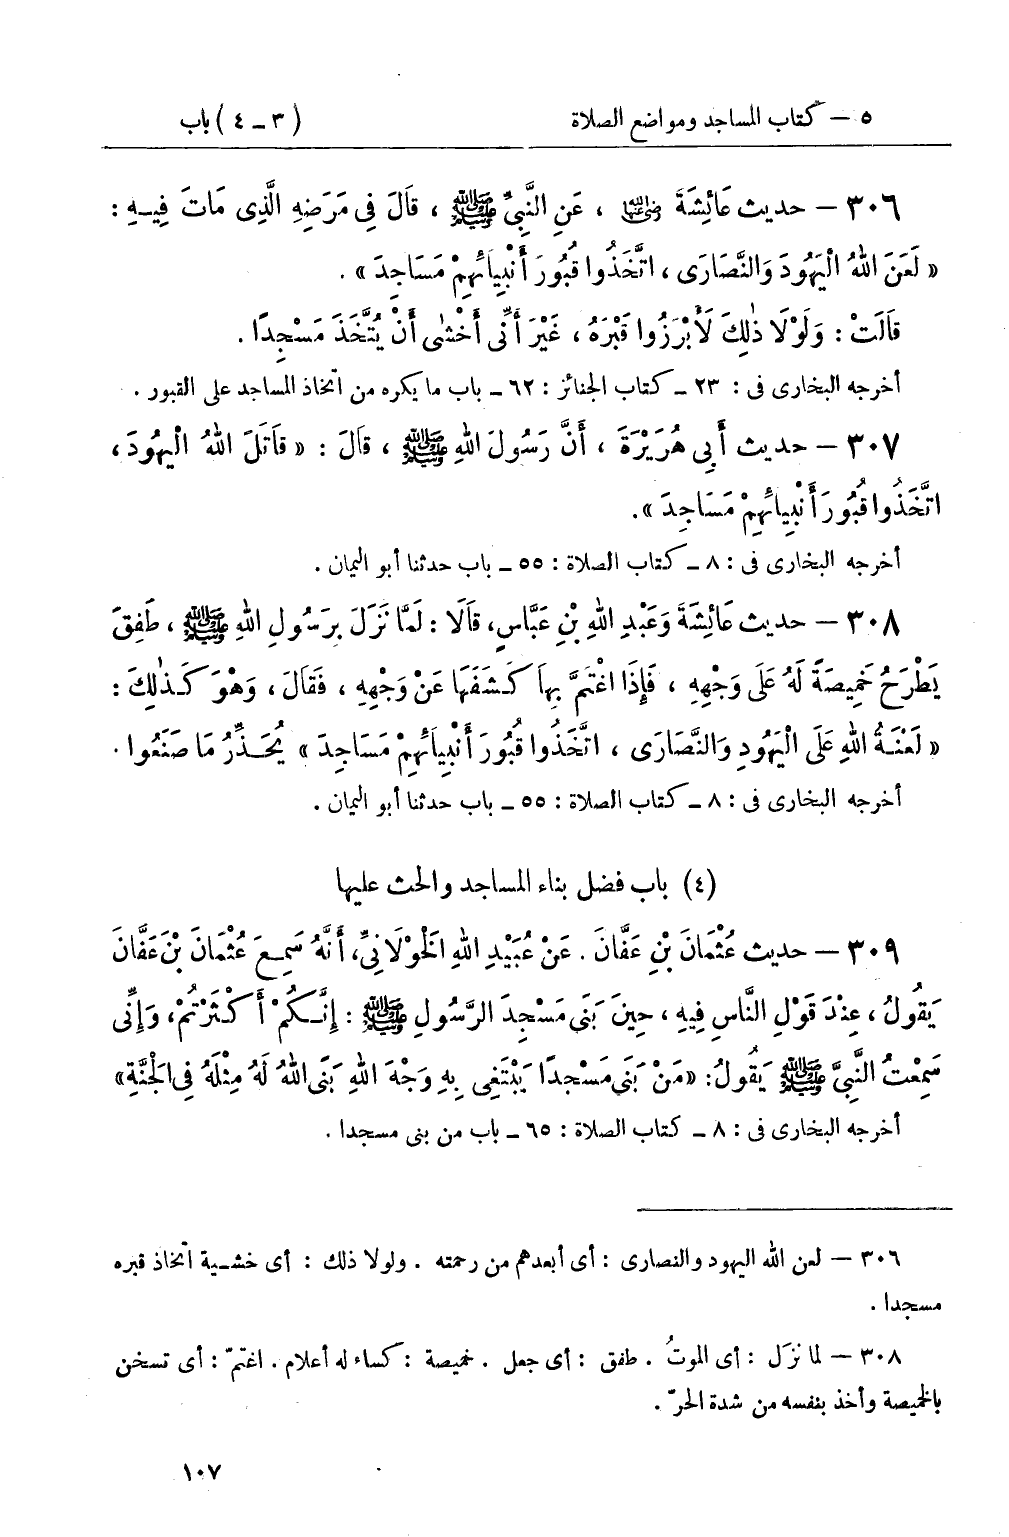 ٥ – كتاب المساجد ومواضع الصلاة (٣ – ٤) باب
٣٠٦ – حديث عَائِشَةَ رضي الله عنها ، عَنِ النَّبِيِّ ﷺ ، قَالَ فِي مَرَضِهِ الَّذِى مَاتَ فِيهِ :
« لَعَنَ اللهُ الْيَهُودَ وَالنَّصَارَى ، اتَّخَذُوا قُبُورَ أَنْبِيَائِهِمْ مَسَاجِدَ » .
قَالَتْ : وَلَوْلَا ذٰلِكَ لَأَبْرَزُوا قَبْرَهُ ، غَيْرَ أَنِّى أَخْشٰى أَنْ يُتَّخَذَ مَسْجِدًا .
أخرجه البخارى فى : ٢٣ ــ كتاب الجنائز : ٦٢ ــ باب ما يكره من اتخاذ المساجد على القبور .
٣٠٧ – حديث أَبِى هُرَيْرَةَ ، أَنَّ رَسُولَ اللهِ ﷺ ، قَالَ : « قَاتَلَ اللهُ الْيَهُودَ ،
اتَّخَذُوا قُبُورَ أَنْبِيَائِهِمْ مَسَاجِدَ » .
أخرجه البخارى فى : ٨ ــ كتاب الصلاة : ٥٥ ــ باب حدثنا أبو اليمان .
٣٠٨ – حديث عَائِشَةَ وَعَبْدِ اللهِ بْنِ عَبَّاسٍ، قَالَا : لَمَّا نَزَلَ بِرَسُولِ اللهِ ﷺ ، طَفِقَ
يَطْرَحُ خَمِيصَةً لَهُ عَلَى وَجْهِهِ ، فَإِذَا اغْتَمَّ بِهَا كَشَفَهَا عَنْ وَجْهِهِ ، فَقَالَ ، وَهْوَ كَذٰلِكَ :
« لَعْنَةُ اللهِ عَلَى الْيَهُودِ وَالنَّصَارَى ، اتَّخَذُوا قُبُورَ أَنْبِيَائِهِمْ مَسَاجِدَ » يُحَذِّرُ مَا صَنَعُوا .
أخرجه البخارى فى : ٨ ــ كتاب الصلاة : ٥٥ ــ باب حدثنا أبو اليمان .
(٤) باب فضل بناء المساجد والحث عليها
٣٠٩ – حديث عُثْمَانَ بْنِ عَفَّانَ . عَنْ عُبَيْدِ اللهِ الْخَوْلَانِيِّ، أَنَّهُ سَمِعَ عُثْمَانَ بْنَ عَفَّانَ
يَقُولُ ، عِنْدَ قَوْلِ النَّاسِ فِيهِ ، حِينَ بَنَى مَسْجِدَ الرَّسُولِ ﷺ : إِنَّكُمْ أَكْثَرْتُمْ، وَإِنِّى
سَمِعْتُ النَّبِيَّ ﷺ يَقُولُ: «مَنْ بَنَى مَسْجِدًا يَبْتَغِى بِهِ وَجْهَ اللهِ بَنَى اللهُ لَهُ مِثْلَهُ فِى الْجَنَّةِ»
أخرجه البخارى فى : ٨ ــ كتاب الصلاة : ٦٥ ــ باب من بنى مسجدا .
٣٠٦ – لعن الله اليهود والنصارى : أى أبعدهم من رحمته . ولولا ذلك : أى خشية اتخاذ قبره
مسجدا .
٣٠٨ – لما نزل : أى الموتُ . طفق : أى جعل . خميصة : كساء له أعلام . اغتمّ : أى تسخن
بالخميصة وأخذ بنفسه من شدة الحرّ .
١٠٧